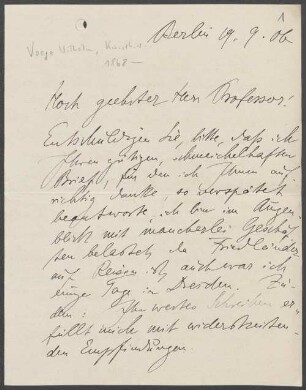 1
Berlin 19. 9. 06
Voege Wilhelm, Kunsthist.
1868 –
Hoch geehrter Herr Professor!
Entschuldigen Sie, bitte, daß ich
Ihren gütigen, schmeichelhaften
Brief, für den ich Ihnen auf
richtig danke, so verspätet
beantworte, ich bin im Augen
blick mit mancherlei Geschäf
ten belastet, da Friedländer
auf Reisen ist, auch war ich
einige Tage in Dresden. Zu
dem: Ihr wertes Schreiben er
füllt mich mit widerstreiten
den Empfindungen.